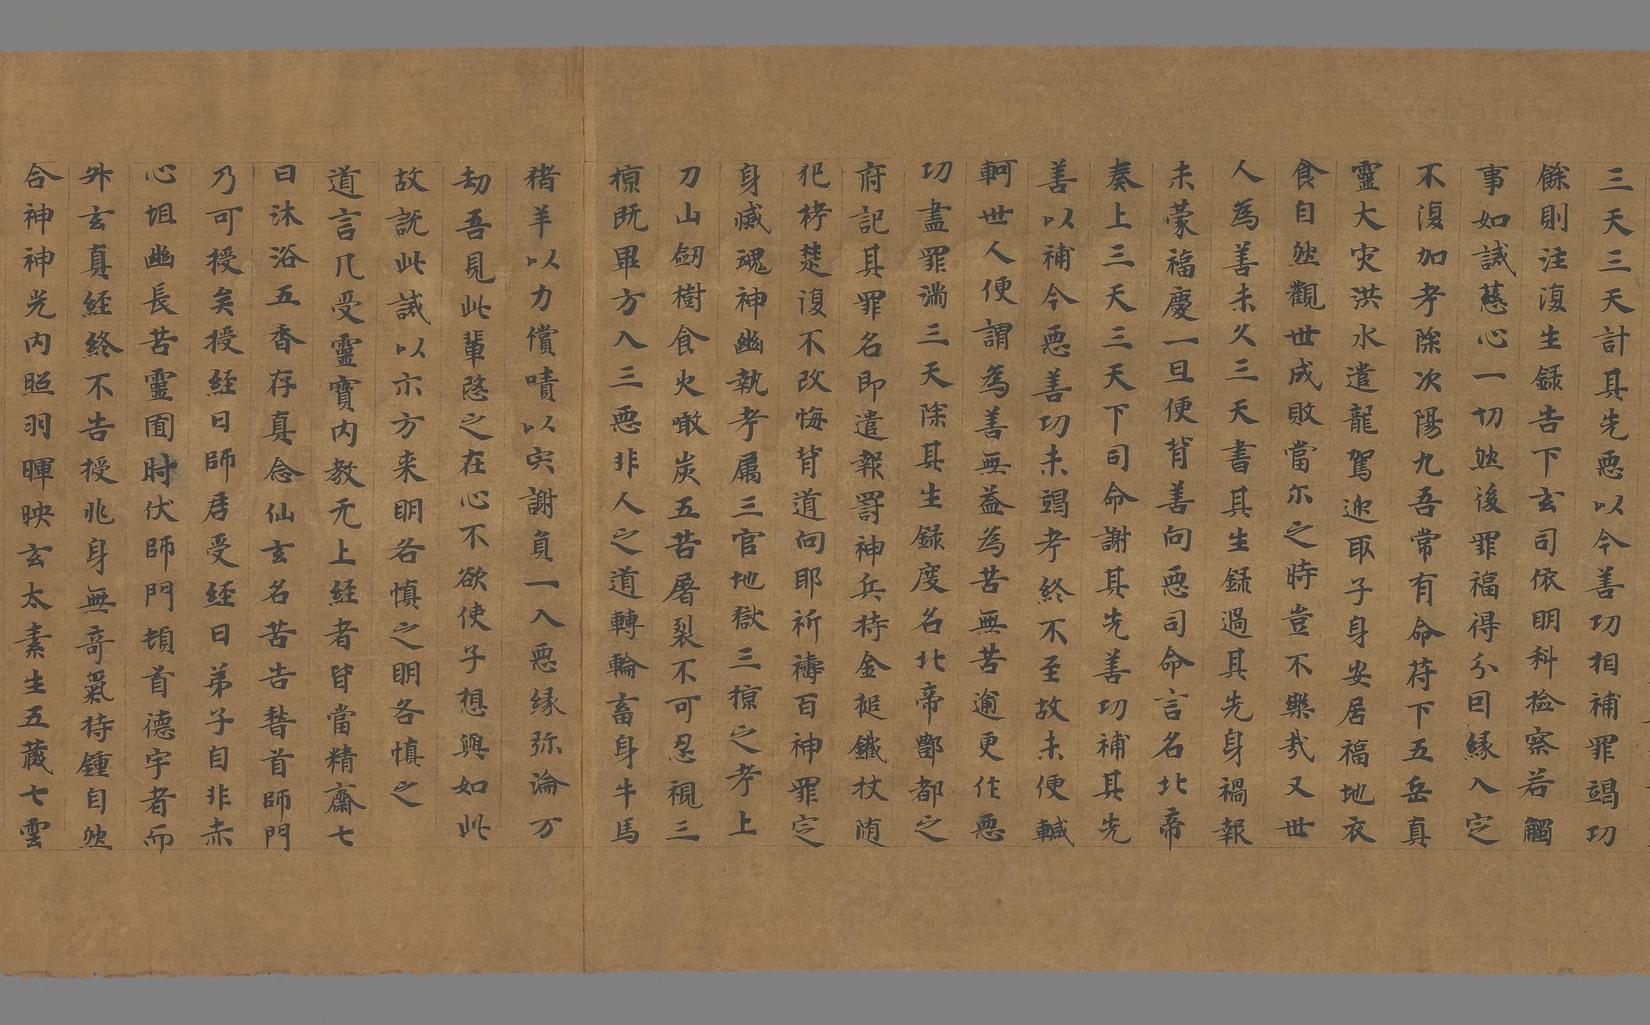 三天三天計其先惡以今善功相補罪竭功
餘則注復生録告下玄司依明科撿察若觸
事如誡慈心一切然後罪福得分回緣入定
不復加考除次陽九吾常有命符下五岳真
靈大灾洪水遣龍駕迎取子身安居福地衣
食自然觀世成敗當尓之時豈不樂哉又世
人為善未久三天書其生録過其先身禍報
未蒙福慶一旦便背善向惡司命言名北帝
奏上三天三天下司命謝其先善功補其先
善以補今惡善功未竭考終不至故未便轗
軻世人便謂為善無益為苦無苦逾更作惡
功盡罪滿三天除其生録度名北帝酆都之
府記其罪名即遣報罰神兵持金槌鐵杖随
犯栲楚復不改悔背道向耶祈禱百神罪定
身臧魂神幽執考属三官地獄三掠之考上
刀山劒樹食火噉炭五苦屠裂不可忍視三
掠既畢方入三惡非人之道轉輪畜身牛馬
猪羊以力償嘖以宍謝負一入惡緣弥淪万
劫吾見此輩愍之在心不欲使子想與如此
故說此誡以示方来明各慎之明各慎之
道言凡受靈寳内教无上經者皆當精齋七
日沐浴五香存真念仙玄名苦告䭫首師門
乃可授矣授經日師君受經日弟子自非赤
心坦幽長苦靈囿時伏師門頓首德宇者而
外玄真經終不告授兆身無奇氣持鍾自然
合神神光内照羽暉映玄太素生五藏七雲